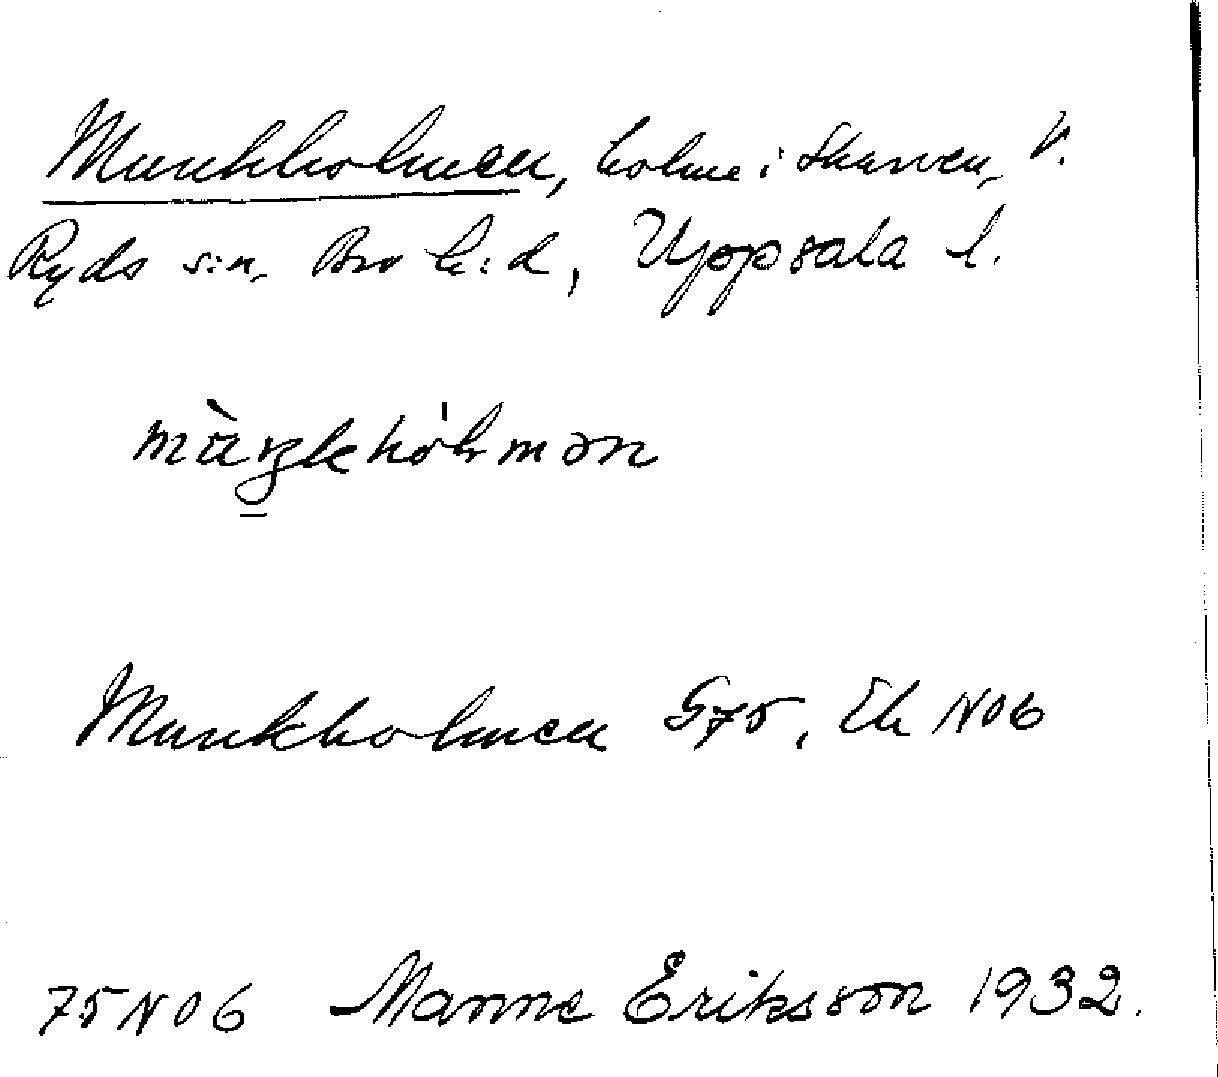 Munkholmen, holme i Skarven, V.
Ryds s:n, Bro h:d, Uppsala l.
Munkholmen G75, Ek NO6
75NO6 Manne Eriksson 1932.